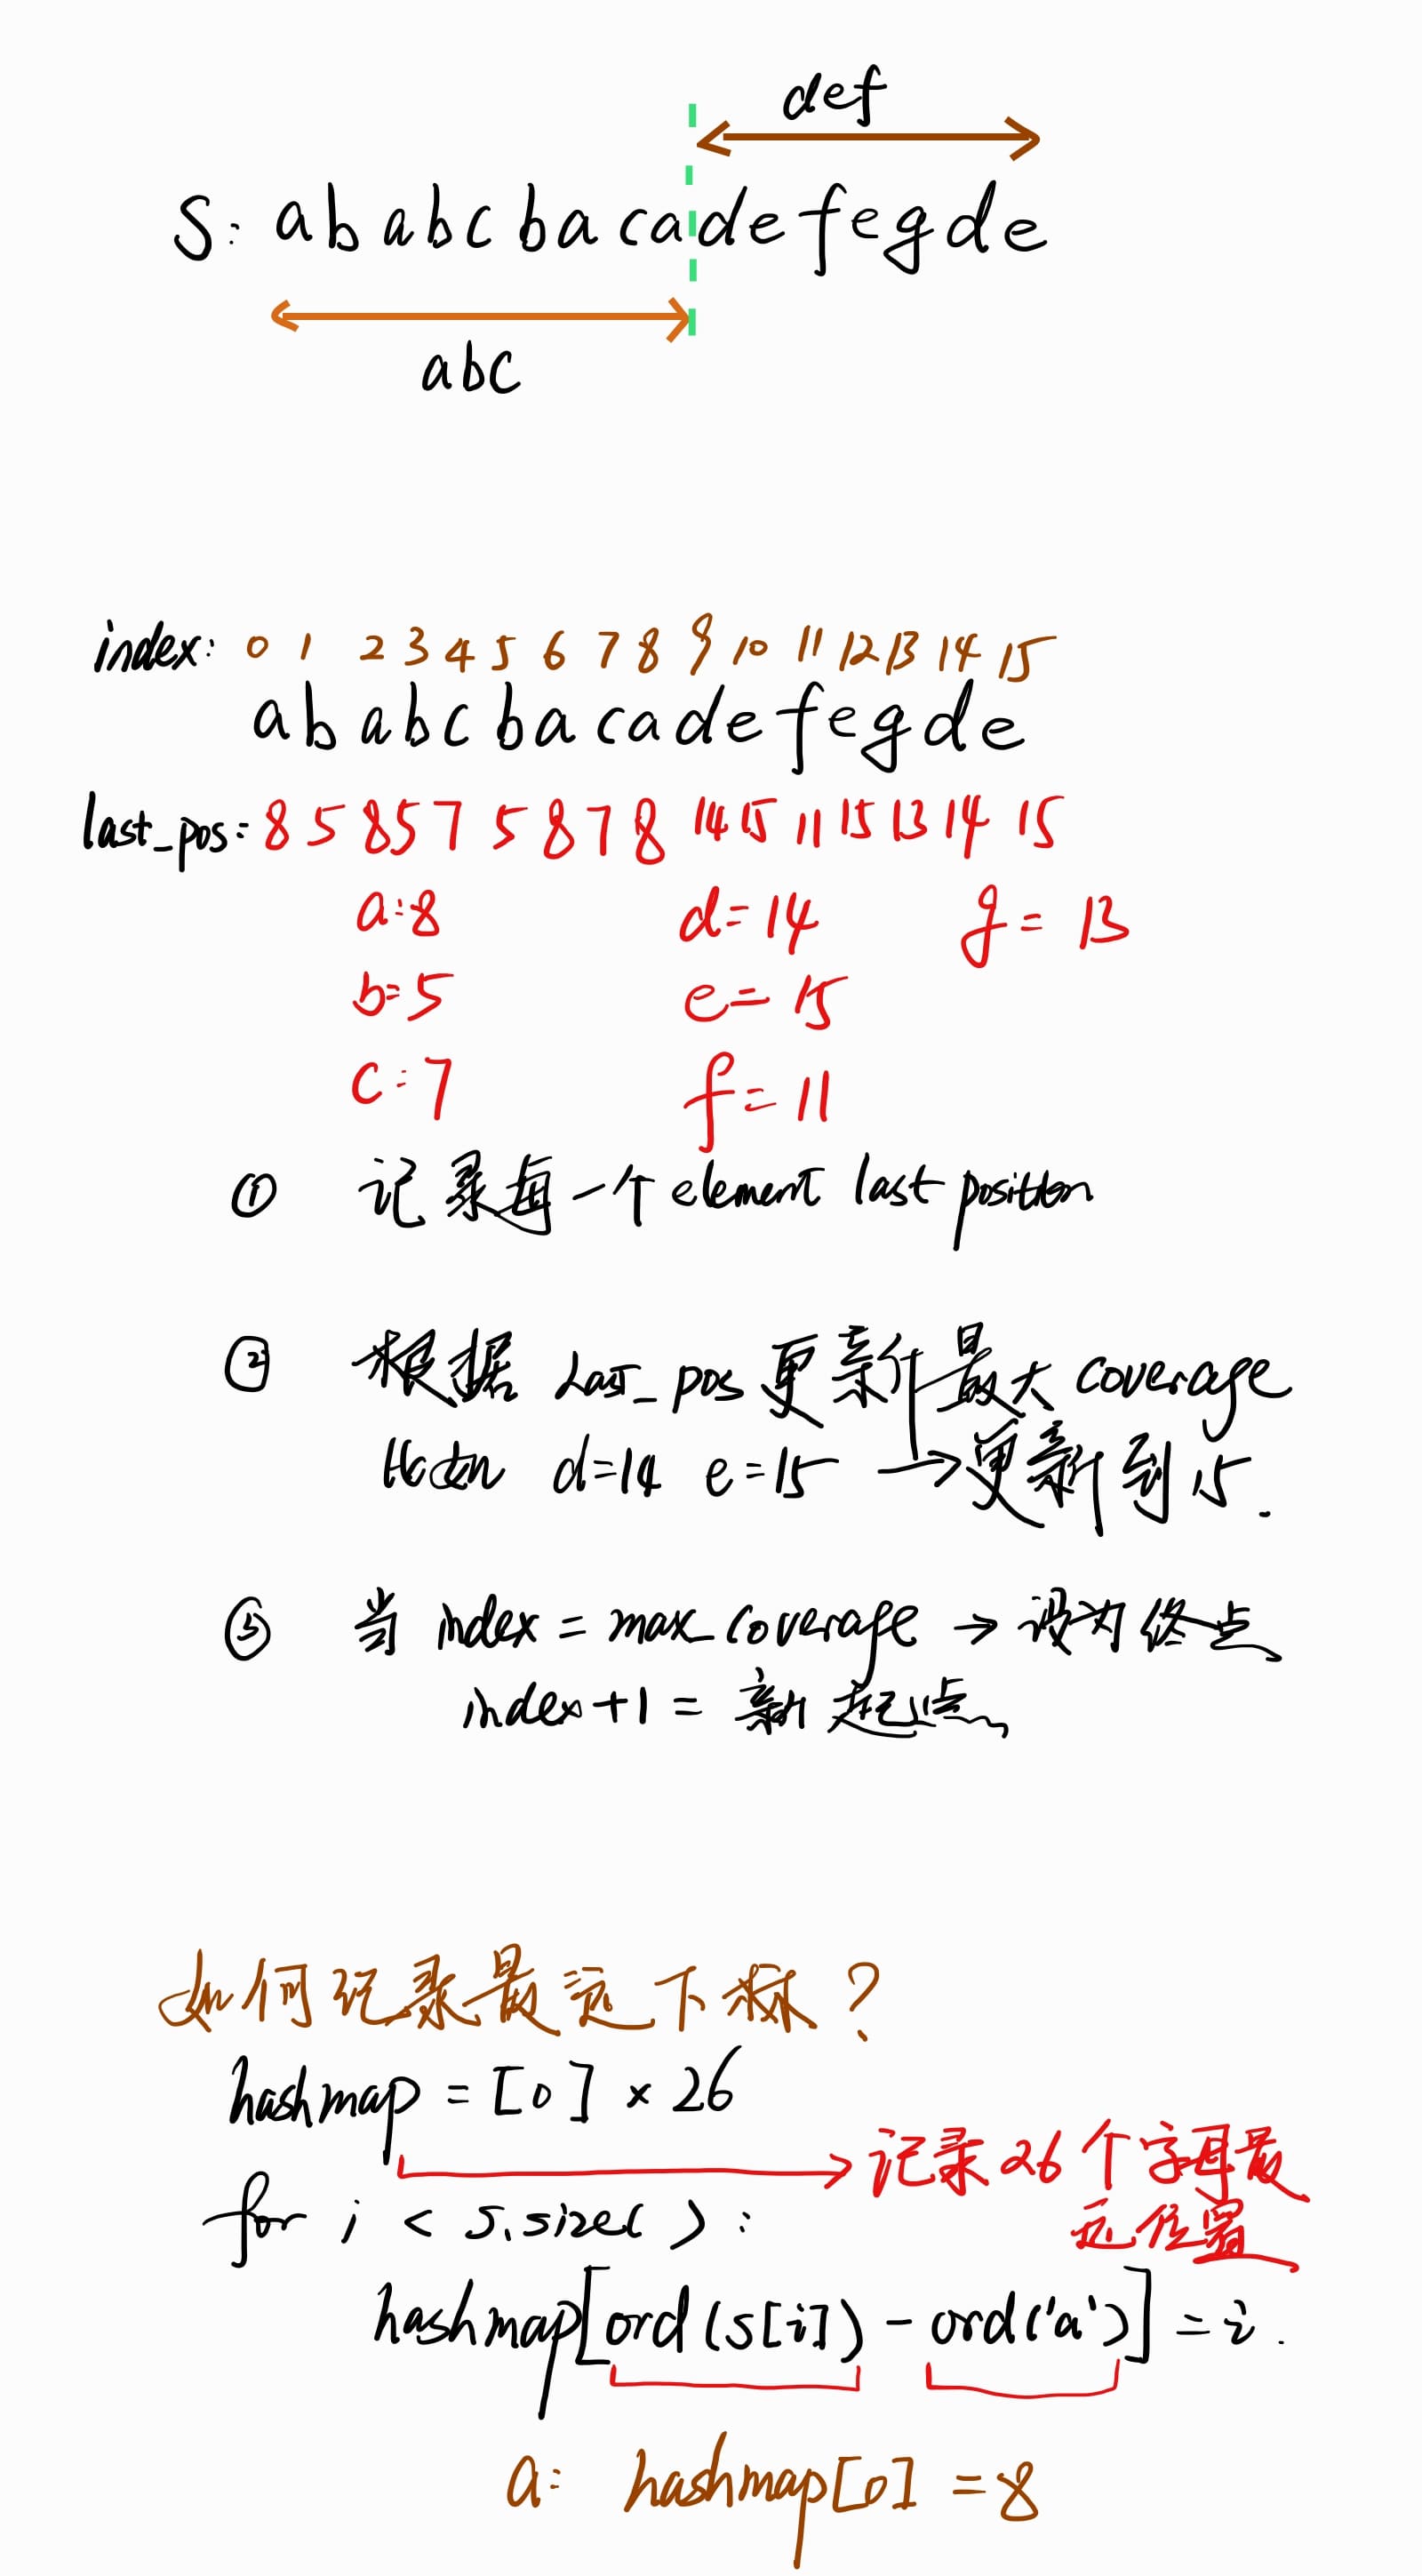 def
S: ababcbacadefegde
abc
index: 0 1 2 3 4 5 6 7 8 9 10 11 12 13 14 15
ababcbacadefegde
last_pos: 8 5 8 5 7 5 8 7 8 14 15 11 15 13 14 15
a:8 d=14 g=13
b=5 e=15
c:7 f=11
① 记录每一个element last position
② 根据 Last_pos更新最大coverage
d=14 e=15 →更新到15.
③ 当 index = max_coverage → 设为终点
index+1 = 新起点
如何记录最远下标?
hashmap = [0] × 26
→ 记录26个字母最
远位置
for i < s.size( ) :
hashmap[ord(s[i]) - ord('a')] = i.
a: hashmap[0] = 8